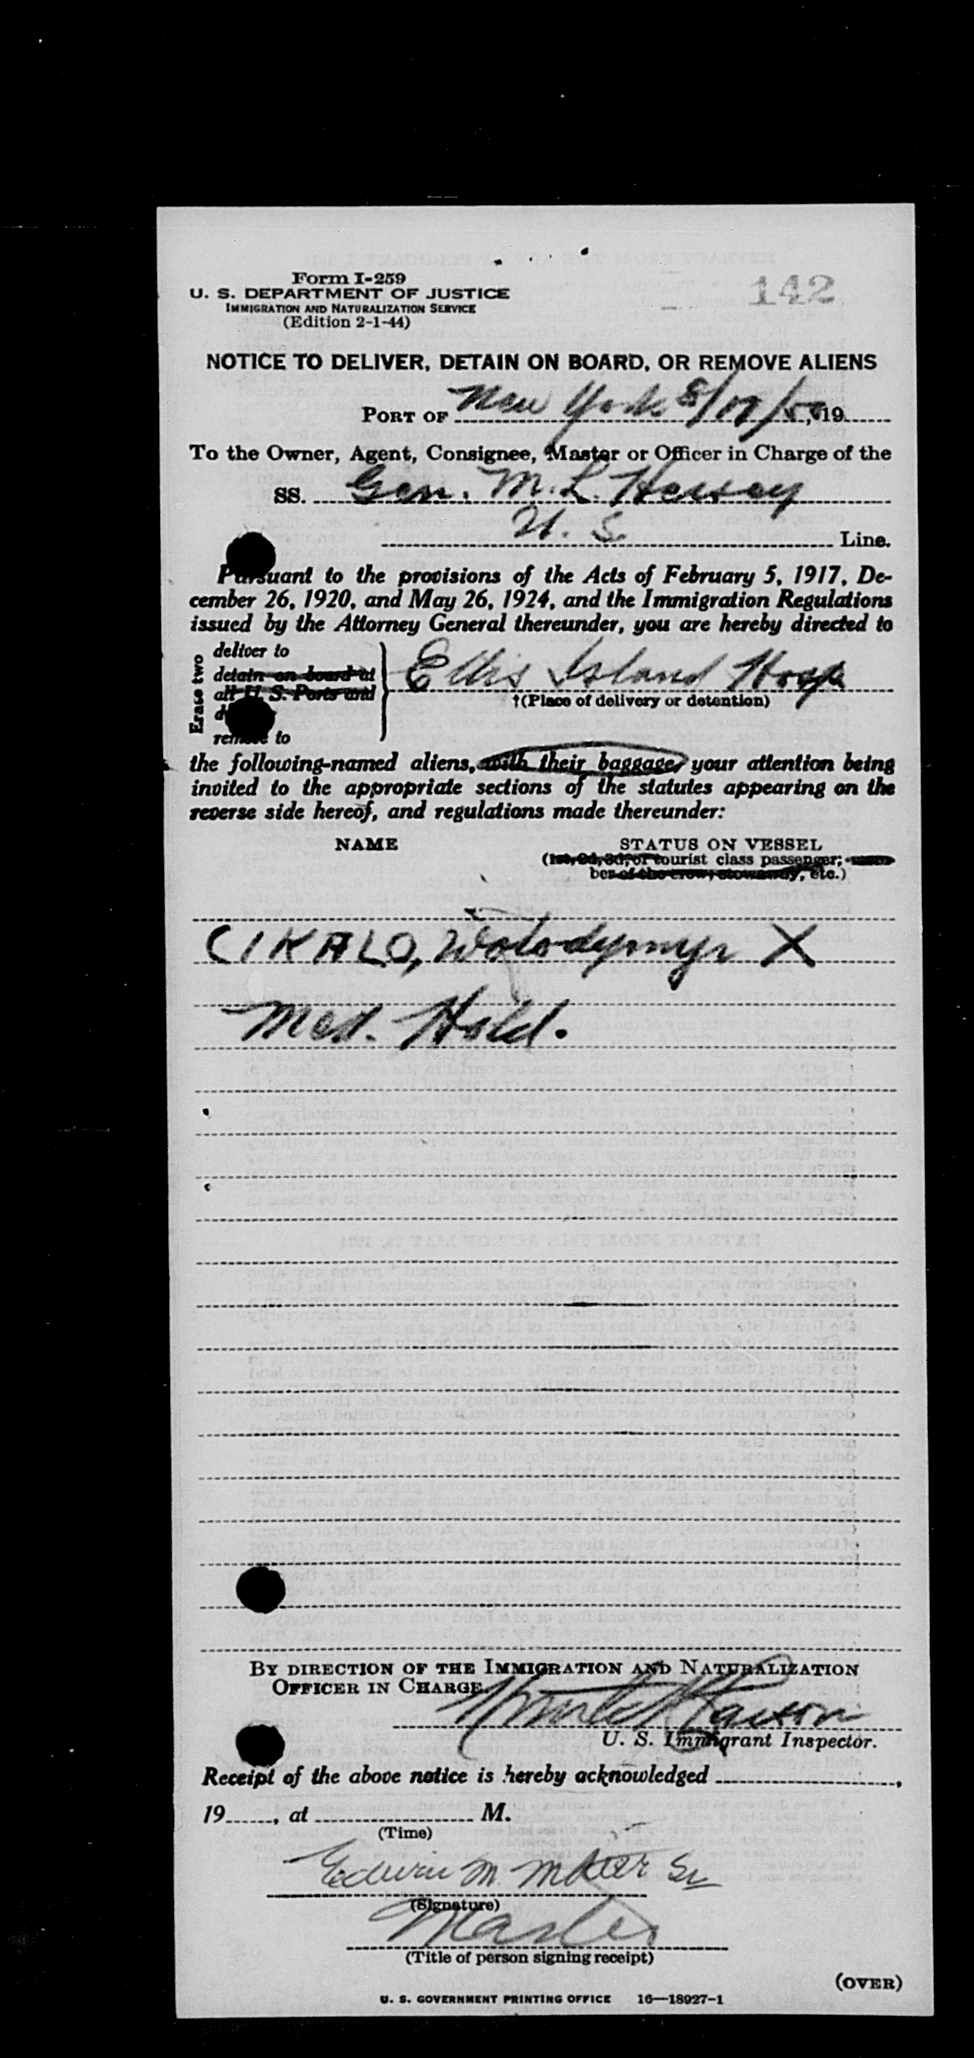 Form I-259
U. S. DEPARTMENT OF JUSTICE
IMMIGRATION AND NATURALIZATION SERVICE
(Edition 2-1-44)
142
NOTICE TO DELIVER, DETAIN ON BOARD, OR REMOVE ALIENS
PORT OF New York 8/ , 19
To the Owner, Agent, Consignee, Master or Officer in Charge of the
SS. Gen. M. L. Hersey
U. S. Line.
Pursuant to the provisions of the Acts of February 5, 1917, De-
cember 26, 1920, and May 26, 1924, and the Immigration Regulations
issued by the Attorney General thereunder, you are hereby directed to
Erase two
deliver to
detain on board at
all U. S. Ports and
remove to
Ellis Island Hosp
†(Place of delivery or detention)
the following-named aliens, with their baggage, your attention being
invited to the appropriate sections of the statutes appearing on the
reverse side hereof, and regulations made thereunder:
NAME STATUS ON VESSEL
(1st, 2d, 3d, or tourist class passenger; mem-
ber of the crew; stowaway, etc.)
CIKALO, Wolodymyr X
Med. Hold.
BY DIRECTION OF THE IMMIGRATION AND NATURALIZATION
OFFICER IN CHARGE.
U. S. Immigrant Inspector.
Receipt of the above notice is hereby acknowledged ,
19 , at M.
(Time)
Edwin M.
(Signature)
Master
(Title of person signing receipt)
(OVER)
U. S. GOVERNMENT PRINTING OFFICE 16—18927-1